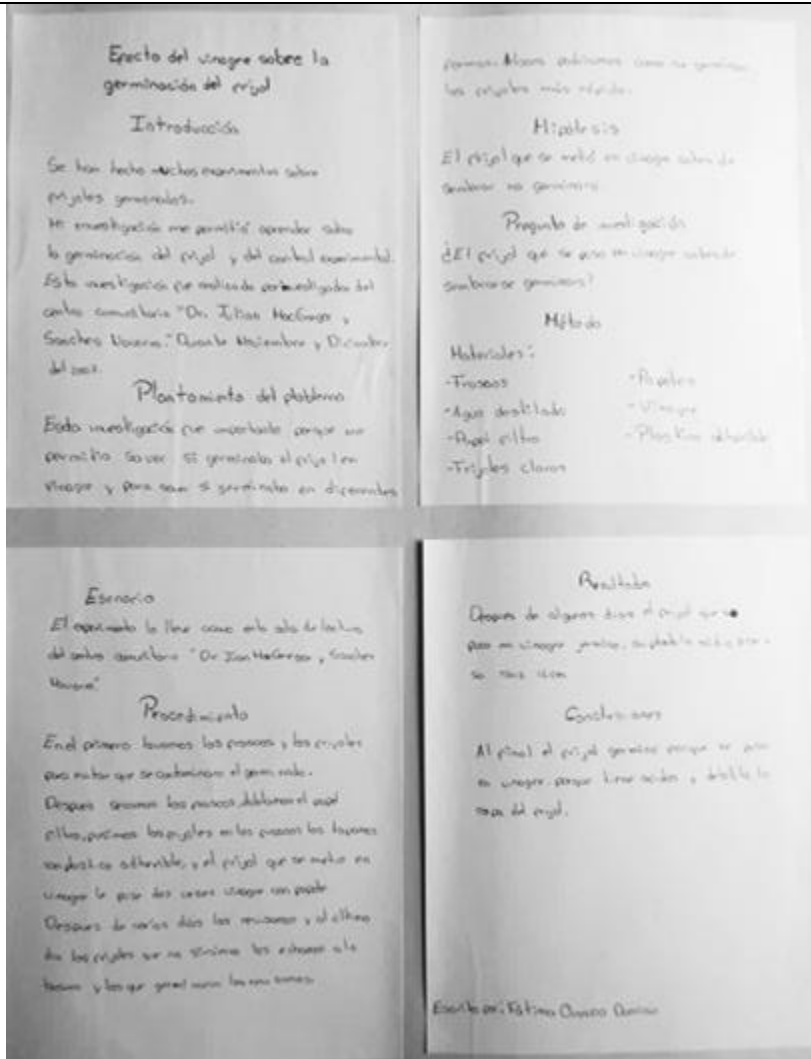 Efecto del vinagre sobre la
germinación del frijol
Introducción
Se han hecho muchos experimentos sobre
frijoles germinados.
Mi investigación me permitió aprender sobre
la germinación del frijol y del control experimental.
Esta investigación fue realizada por investigador del
centro comunitario "Dr. Julian MacGregor y
Sanchez Navarro." Durante Noviembre y Diciembre
del
Plantamiento del ploblema
Esta investigación fue importante porque me
permitio saver si germinaba el frijol en
vinagre y para saver si germinaba en diferentes
formas. Ahora podriamos como se germinan
los frijoles más rápido.
Hipótesis
El frijol que se metió en vinagre antes de
sembrar no germinara.
Pregunta de investigación
¿El frijol que se puso en vinagre antes de
sembrarse germinara?
Método
Materiales:
-Frascos
-Agua destilada
-Papel filtro
-Frijoles claros
-Vinagre
-Plastico adherible
Esenario
El experimento lo lleve acavo en la sala de lectura
del centro comunitario "Dr. MacGregor y Sanchez
Navarro"
Procedimiento
En el primero lavamos los frascos y los frijoles
para evitar que se contaminara el germinado.
Despues secamos los frascos, doblamos el papel
filtro, pusimos los frijoles en los frascos los tapamos
con plastico adherible, y el frijol que se metio en
vinagre le puse dos veces vinagre con
Despues de varios dias los revisamos y el ultimo
dia los frijoles que no sirvieron los echamos a la
basura y los que germinaron los
Resultado
Despues de algunos dias el frijol que se
puso en vinagre
Conclusiones
Al final el frijol germino porque se puso
en vinagre porque tiene acidos y debilita la
capa del frijol.
Escrito por: Fatima